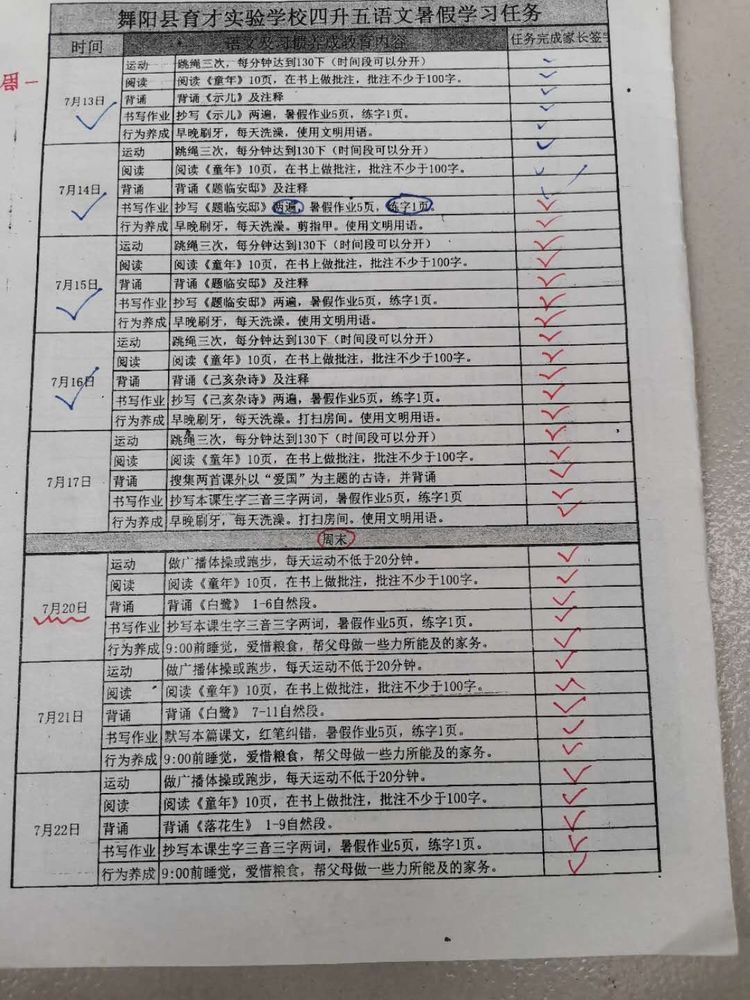 舞阳县育才实验学校四升五语文暑假学习任务
时间 语文及习惯养成教育内容 任务完成家长签字
周一
7月13日
运动 跳绳三次，每分钟达到130下（时间段可以分开）
阅读 阅读《童年》10页，在书上做批注，批注不少于100字。
背诵 背诵《示儿》及注释
书写作业 抄写《示儿》两遍，暑假作业5页，练字1页。
行为养成 早晚刷牙，每天洗澡，使用文明用语。
7月14日
运动 跳绳三次，每分钟达到130下（时间段可以分开）
阅读 阅读《童年》10页，在书上做批注，批注不少于100字。
背诵 背诵《题临安邸》及注释
书写作业 抄写《题临安邸》两遍，暑假作业5页，练字1页。
行为养成 早晚刷牙，每天洗澡。剪指甲。使用文明用语。
7月15日
运动 跳绳三次，每分钟达到130下（时间段可以分开）
阅读 阅读《童年》10页，在书上做批注，批注不少于100字。
背诵 背诵《题临安邸》及注释
书写作业 抄写《题临安邸》两遍，暑假作业5页，练字1页。
行为养成 早晚刷牙，每天洗澡。使用文明用语。
7月16日
运动 跳绳三次，每分钟达到130下（时间段可以分开）
阅读 阅读《童年》10页，在书上做批注，批注不少于100字。
背诵 背诵《己亥杂诗》及注释
书写作业 抄写《己亥杂诗》两遍，暑假作业5页，练字1页。
行为养成 早晚刷牙，每天洗澡。打扫房间。使用文明用语。
7月17日
运动 跳绳三次，每分钟达到130下（时间段可以分开）
阅读 阅读《童年》10页，在书上做批注，批注不少于100字。
背诵 搜集两首课外以“爱国”为主题的古诗，并背诵
书写作业 抄写本课生字三音三字两词，暑假作业5页，练字1页
行为养成 早晚刷牙，每天洗澡。打扫房间。使用文明用语。
周末
7月20日
运动 做广播体操或跑步，每天运动不低于20分钟。
阅读 阅读《童年》10页，在书上做批注，批注不少于100字。
背诵 背诵《白鹭》 1-6自然段。
书写作业 抄写本课生字三音三字两词，暑假作业5页，练字1页。
行为养成 9:00前睡觉，爱惜粮食，帮父母做一些力所能及的家务。
7月21日
运动 做广播体操或跑步，每天运动不低于20分钟。
阅读 阅读《童年》10页，在书上做批注，批注不少于100字。
背诵 背诵《白鹭》 7-11自然段。
书写作业 默写本篇课文，红笔纠错，暑假作业5页，练字1页。
行为养成 9:00前睡觉，爱惜粮食，帮父母做一些力所能及的家务。
7月22日
运动 做广播体操或跑步，每天运动不低于20分钟。
阅读 阅读《童年》10页，在书上做批注，批注不少于100字。
背诵 背诵《落花生》 1-9自然段。
书写作业 抄写本课生字三音三字两词，暑假作业5页，练字1页。
行为养成 9:00前睡觉，爱惜粮食，帮父母做一些力所能及的家务。